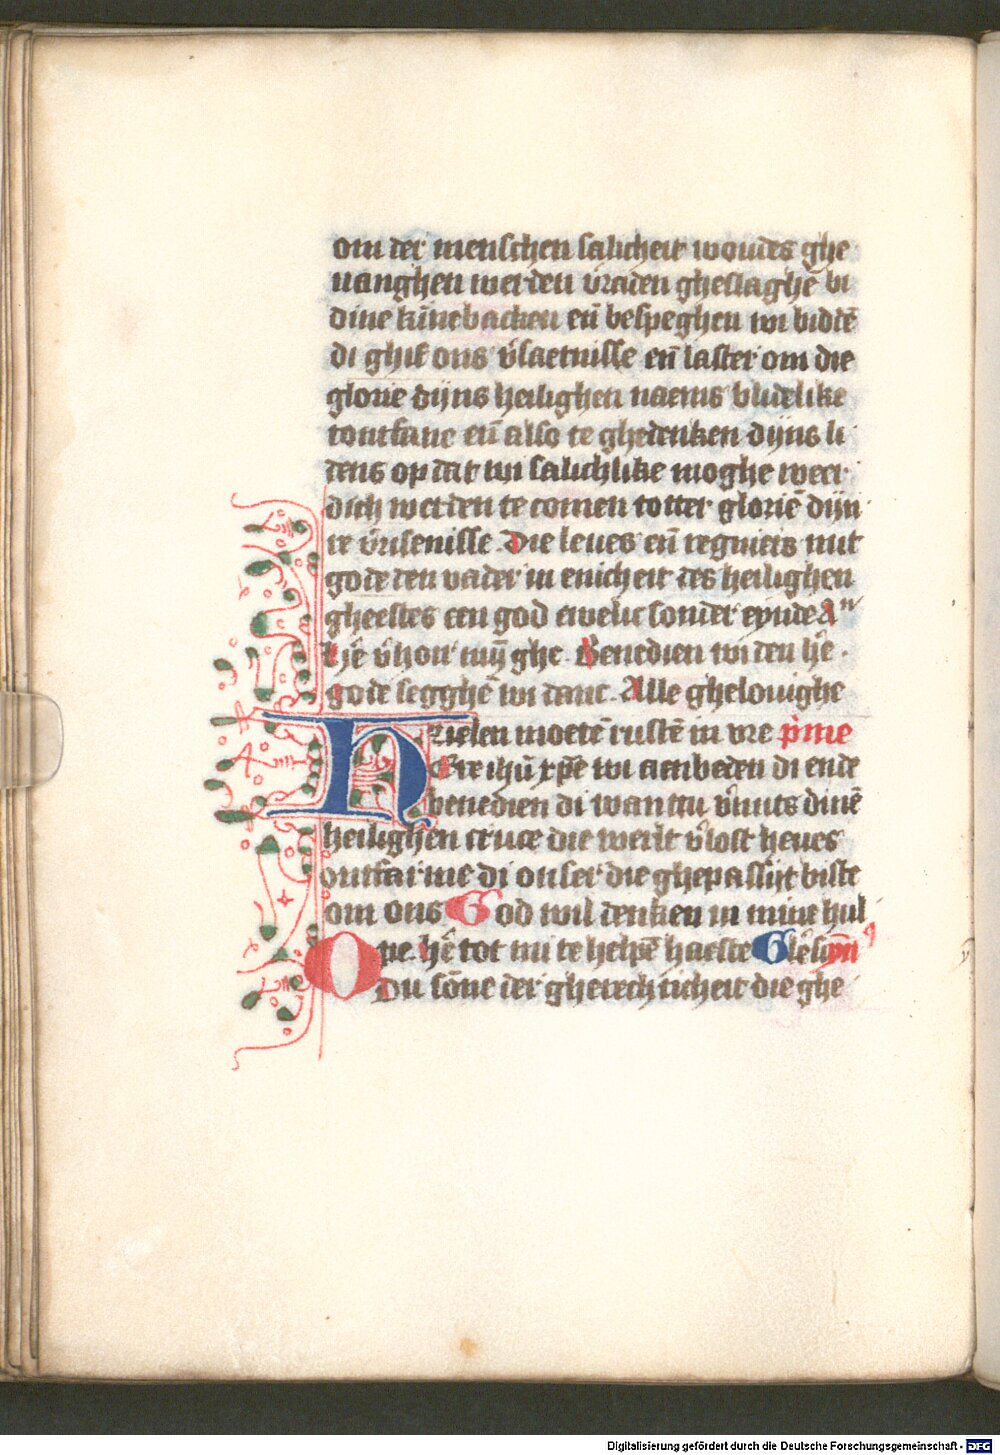 om der menschen salicheit woudes ghe
uanghen werden v̄raden gheslaghē bi
dine kīnebacken en̄ bespeghen wi biddē
di ghif ons v̄smaetnisse en̄ laster om die
glorie dijns heilighen naems blidelike
tontfane en̄ also te ghedenken dijns li
dens op dat wi salichlike moghē weer
dich werden te comen totter gloriē dijn
re v̄risenisse. Die leues en̄ regniers mit
gode den vader in enicheit des heilighen
gheestes een god ewelic sonder eynde Aⁿ
hē v̄hoir mijn ghe. Benedien wi den hē.
gode segghē wi danc. Alle ghelouighe
zielen moetē rustē in vre p̄me
HEre ihū xp̄e wi aenbeden di ende
benedien di want tu v̄mits dinē
heilighen cruce die werlt v̄lost heues
ontfarme di onser die ghepassijt biste
om ons God wil denken in mine hul
pe. hē tot mi te helpē haeste Glē sy ym̄
O Du sōne der gherechticheit die ghe
Digitalisierung gefördert durch die Deutsche Forschungsgemeinschaft - DFG